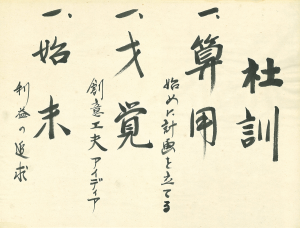 社訓
一、算用
始めに計画を立てる
一、才覚
創意工夫アイディア
一、始末
利益の追求